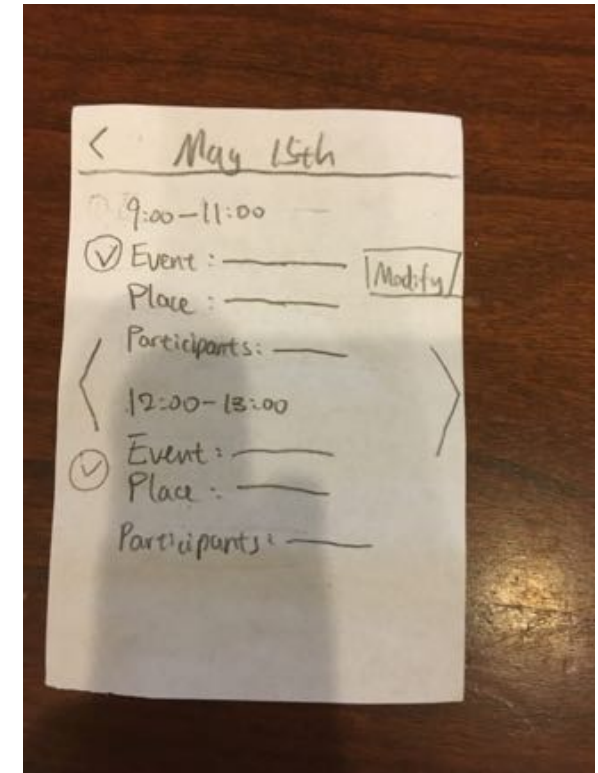 < May 15th
9:00-11:00
Event:
Modify
Place:
Participants:
12:00-13:00
Event:
Place:
Participants: